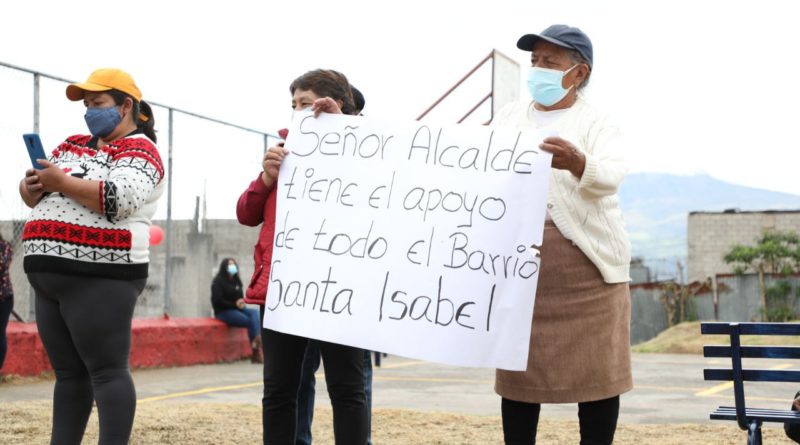 Señor Alcalde
tiene el apoyo
de todo el Barrio
Santa Isabel